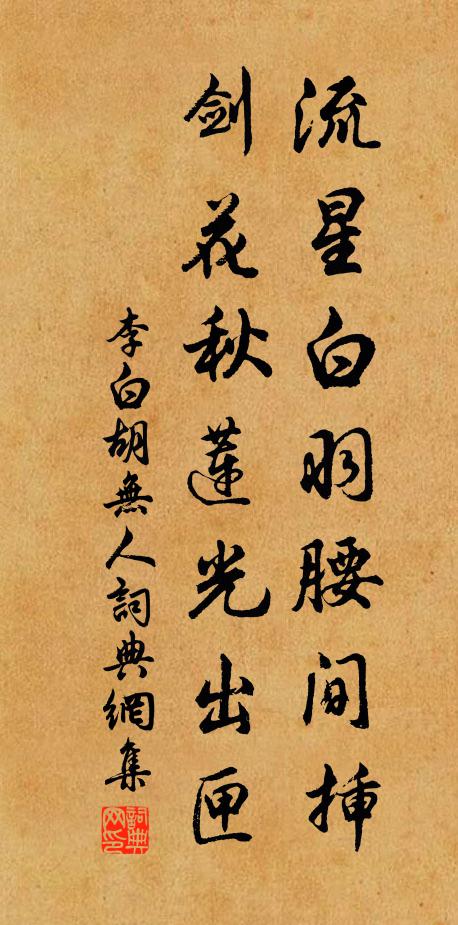 流星白羽腰間揷
剑花秋蓮光出匣
李白胡無人詞典網集
詞典网印